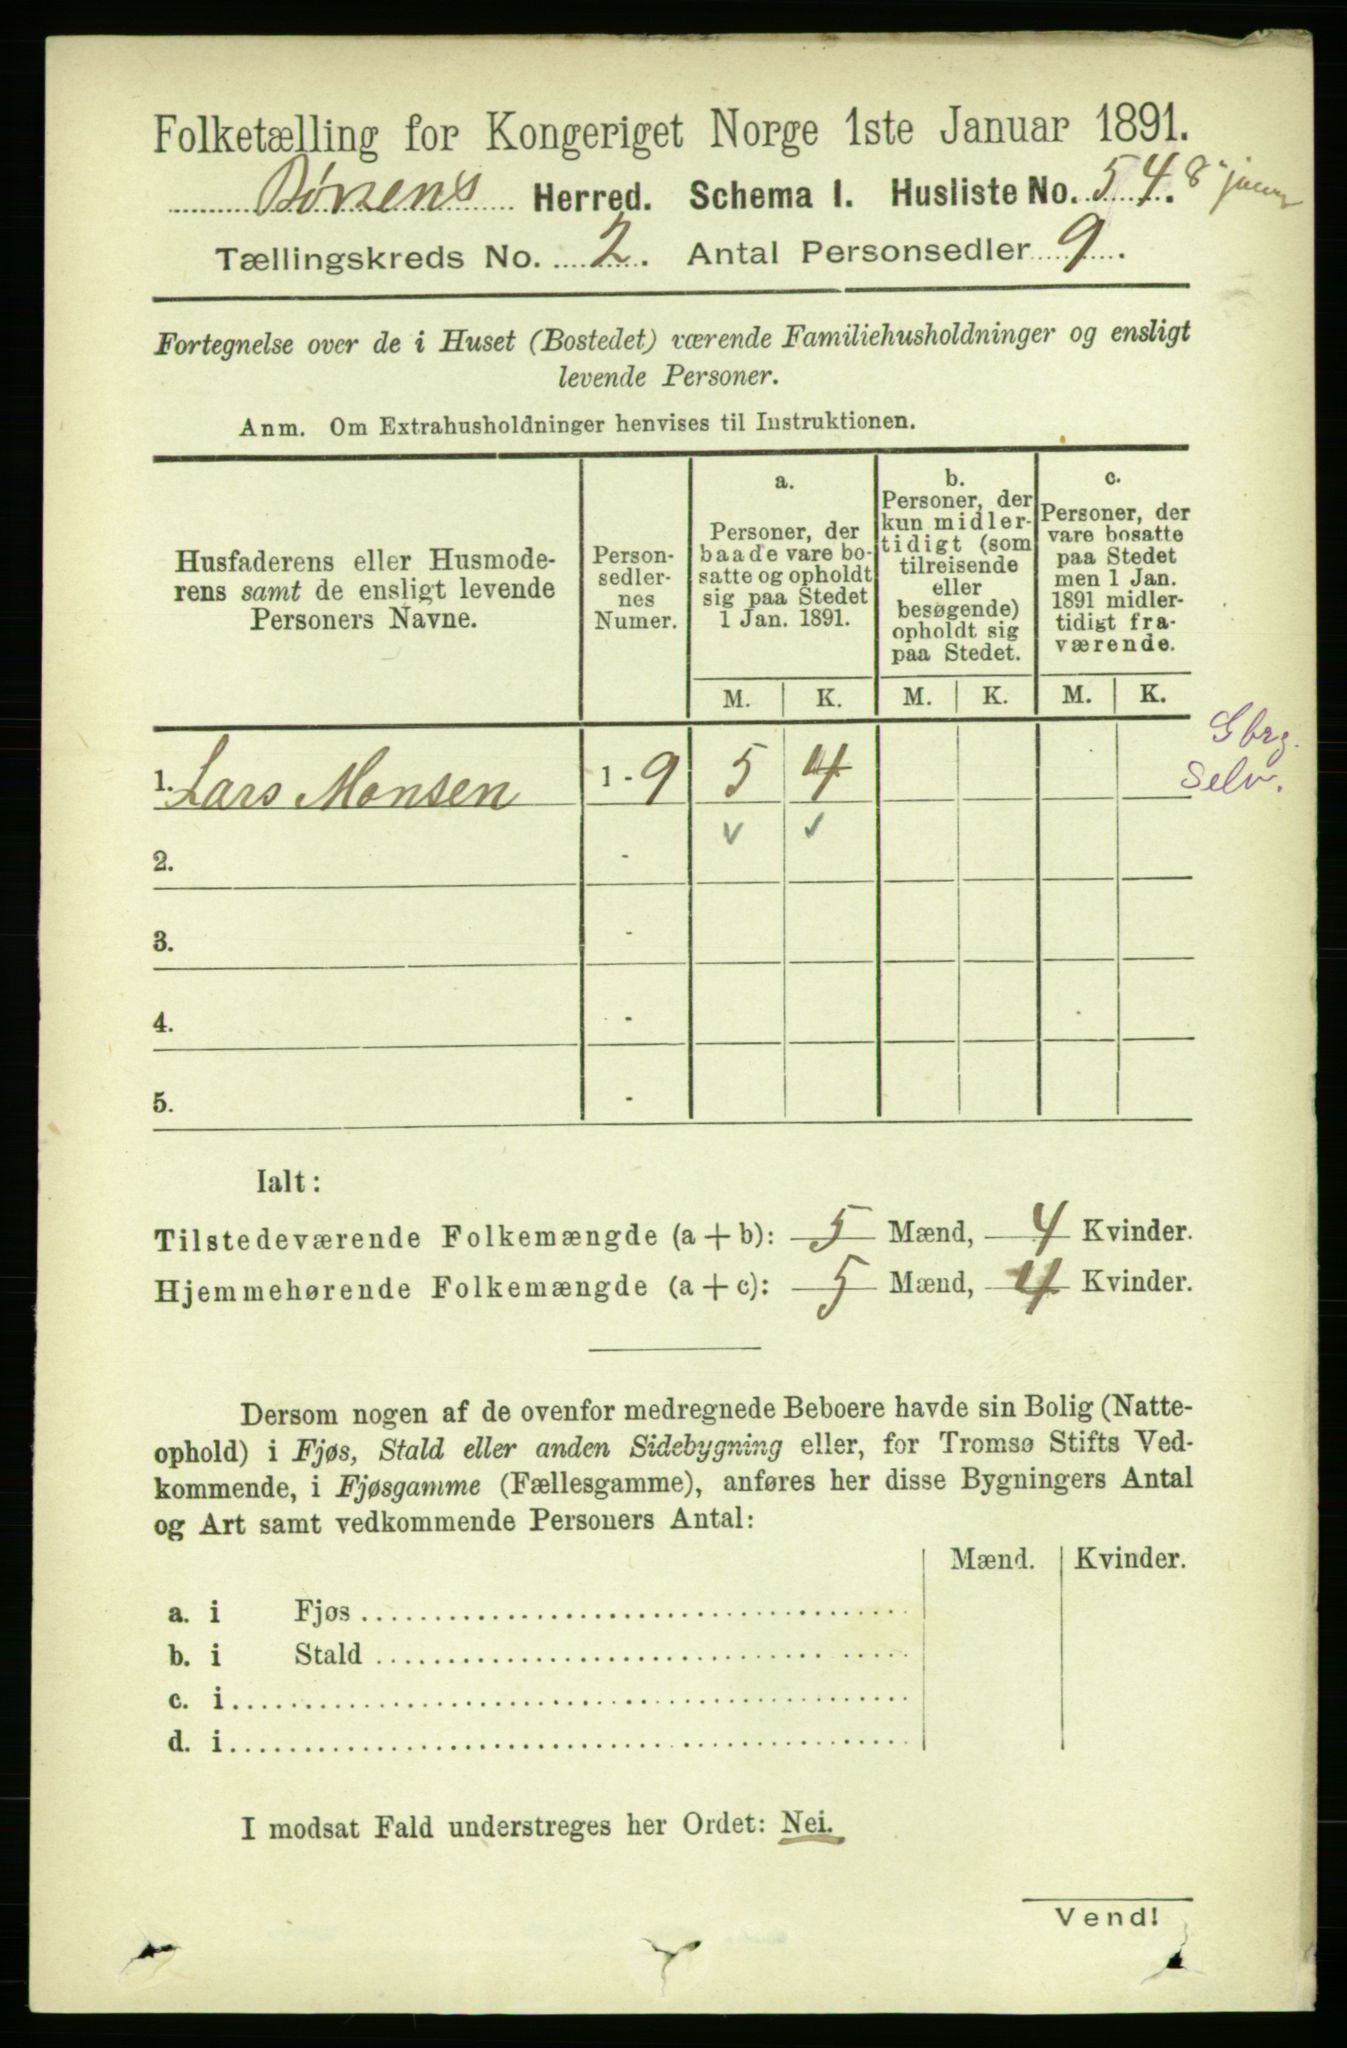 Folketælling for Kongeriget Norge 1ste Januar 1891.
Børsens Herred. Schema I. Husliste No. 54.
Tællingskreds No. 2. Antal Personsedler 9.
Fortegnelse over de i Huset (Bostedet) værende Familiehusholdninger og ensligt
levende Personer.
Anm. Om Extrahusholdninger henvises til Instruktionen.
Husfaderens eller Husmode-
rens samt de ensligt levende
Personers Navne.
Person-
sedler-
nes
Numer.
a.
Personer, der
baade vare bo-
satte og opholdt
sig paa Stedet
1 Jan. 1891.
b.
Personer, der
kun midler-
tidigt (som
tilreisende
eller
besøgende)
opholdt sig
paa Stedet.
c.
Personer, der
vare bosatte
paa Stedet
men 1 Jan.
1891 midler-
tidigt fra-
værende.
M. K. M. K. M. K.
Gbrg.
Selv.
1. Lars Monsen 1 - 9 5 4
2. -
3. -
4. -
5. -
Ialt:
Tilstedeværende Folkemængde (a + b): 5 Mænd, 4 Kvinder.
Hjemmehørende Folkemængde (a + c): 5 Mænd, 4 Kvinder.
Dersom nogen af de ovenfor medregnede Beboere havde sin Bolig (Natte-
ophold) i Fjøs, Stald eller anden Sidebygning eller, for Tromsø Stifts Ved-
kommende, i Fjøsgamme (Fællesgamme), anføres her disse Bygningers Antal
og Art samt vedkommende Personers Antal:
Mænd. Kvinder.
a. i Fjøs
b. i Stald
c. i
d. i
I modsat Fald understreges her Ordet: Nei.
Vend!